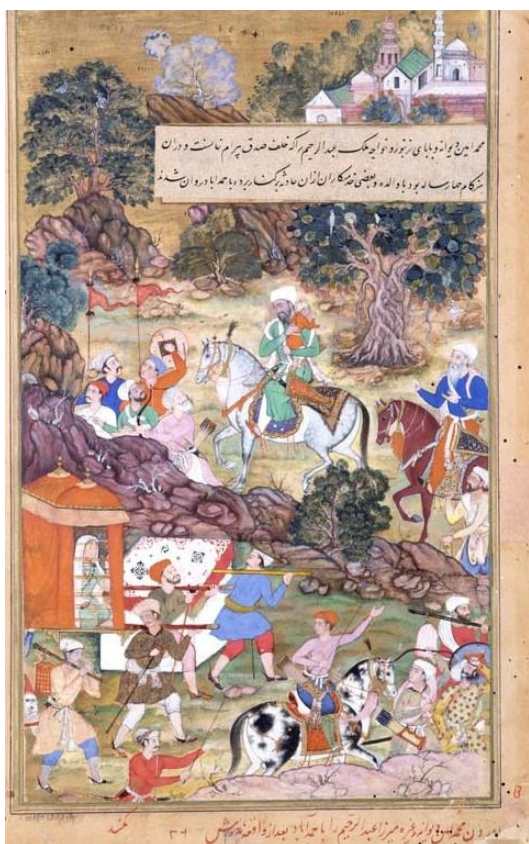 محمد امین دیوانه و بابای زنبور و خواجه ملک عبدالرحیم را که خلف صدق بیرام خانست و دران
هنکام چهار ساله بود با والده و بعضی خدمتکاران ازان حادثه برکنار برده باحمداباد روان شدند
محمد امین دیوانه وغیره میرزا عبدالرحیم را باحمد آباد بعد از واقعه